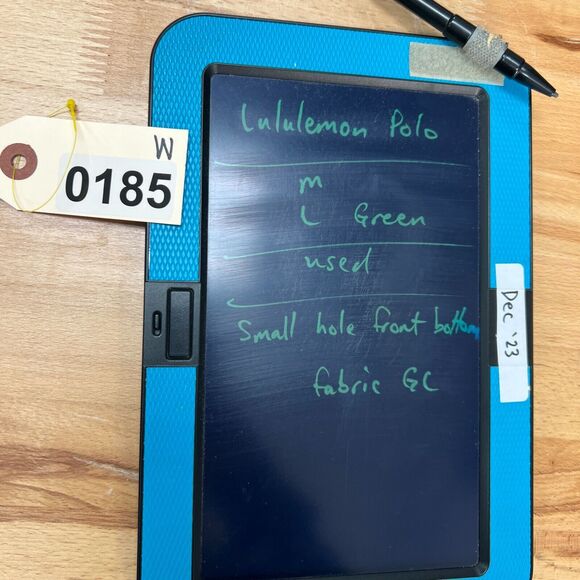 Lululemon Polo
M
L Green
used
Small hole front bottom
fabric GC
W
0185
Dec '23